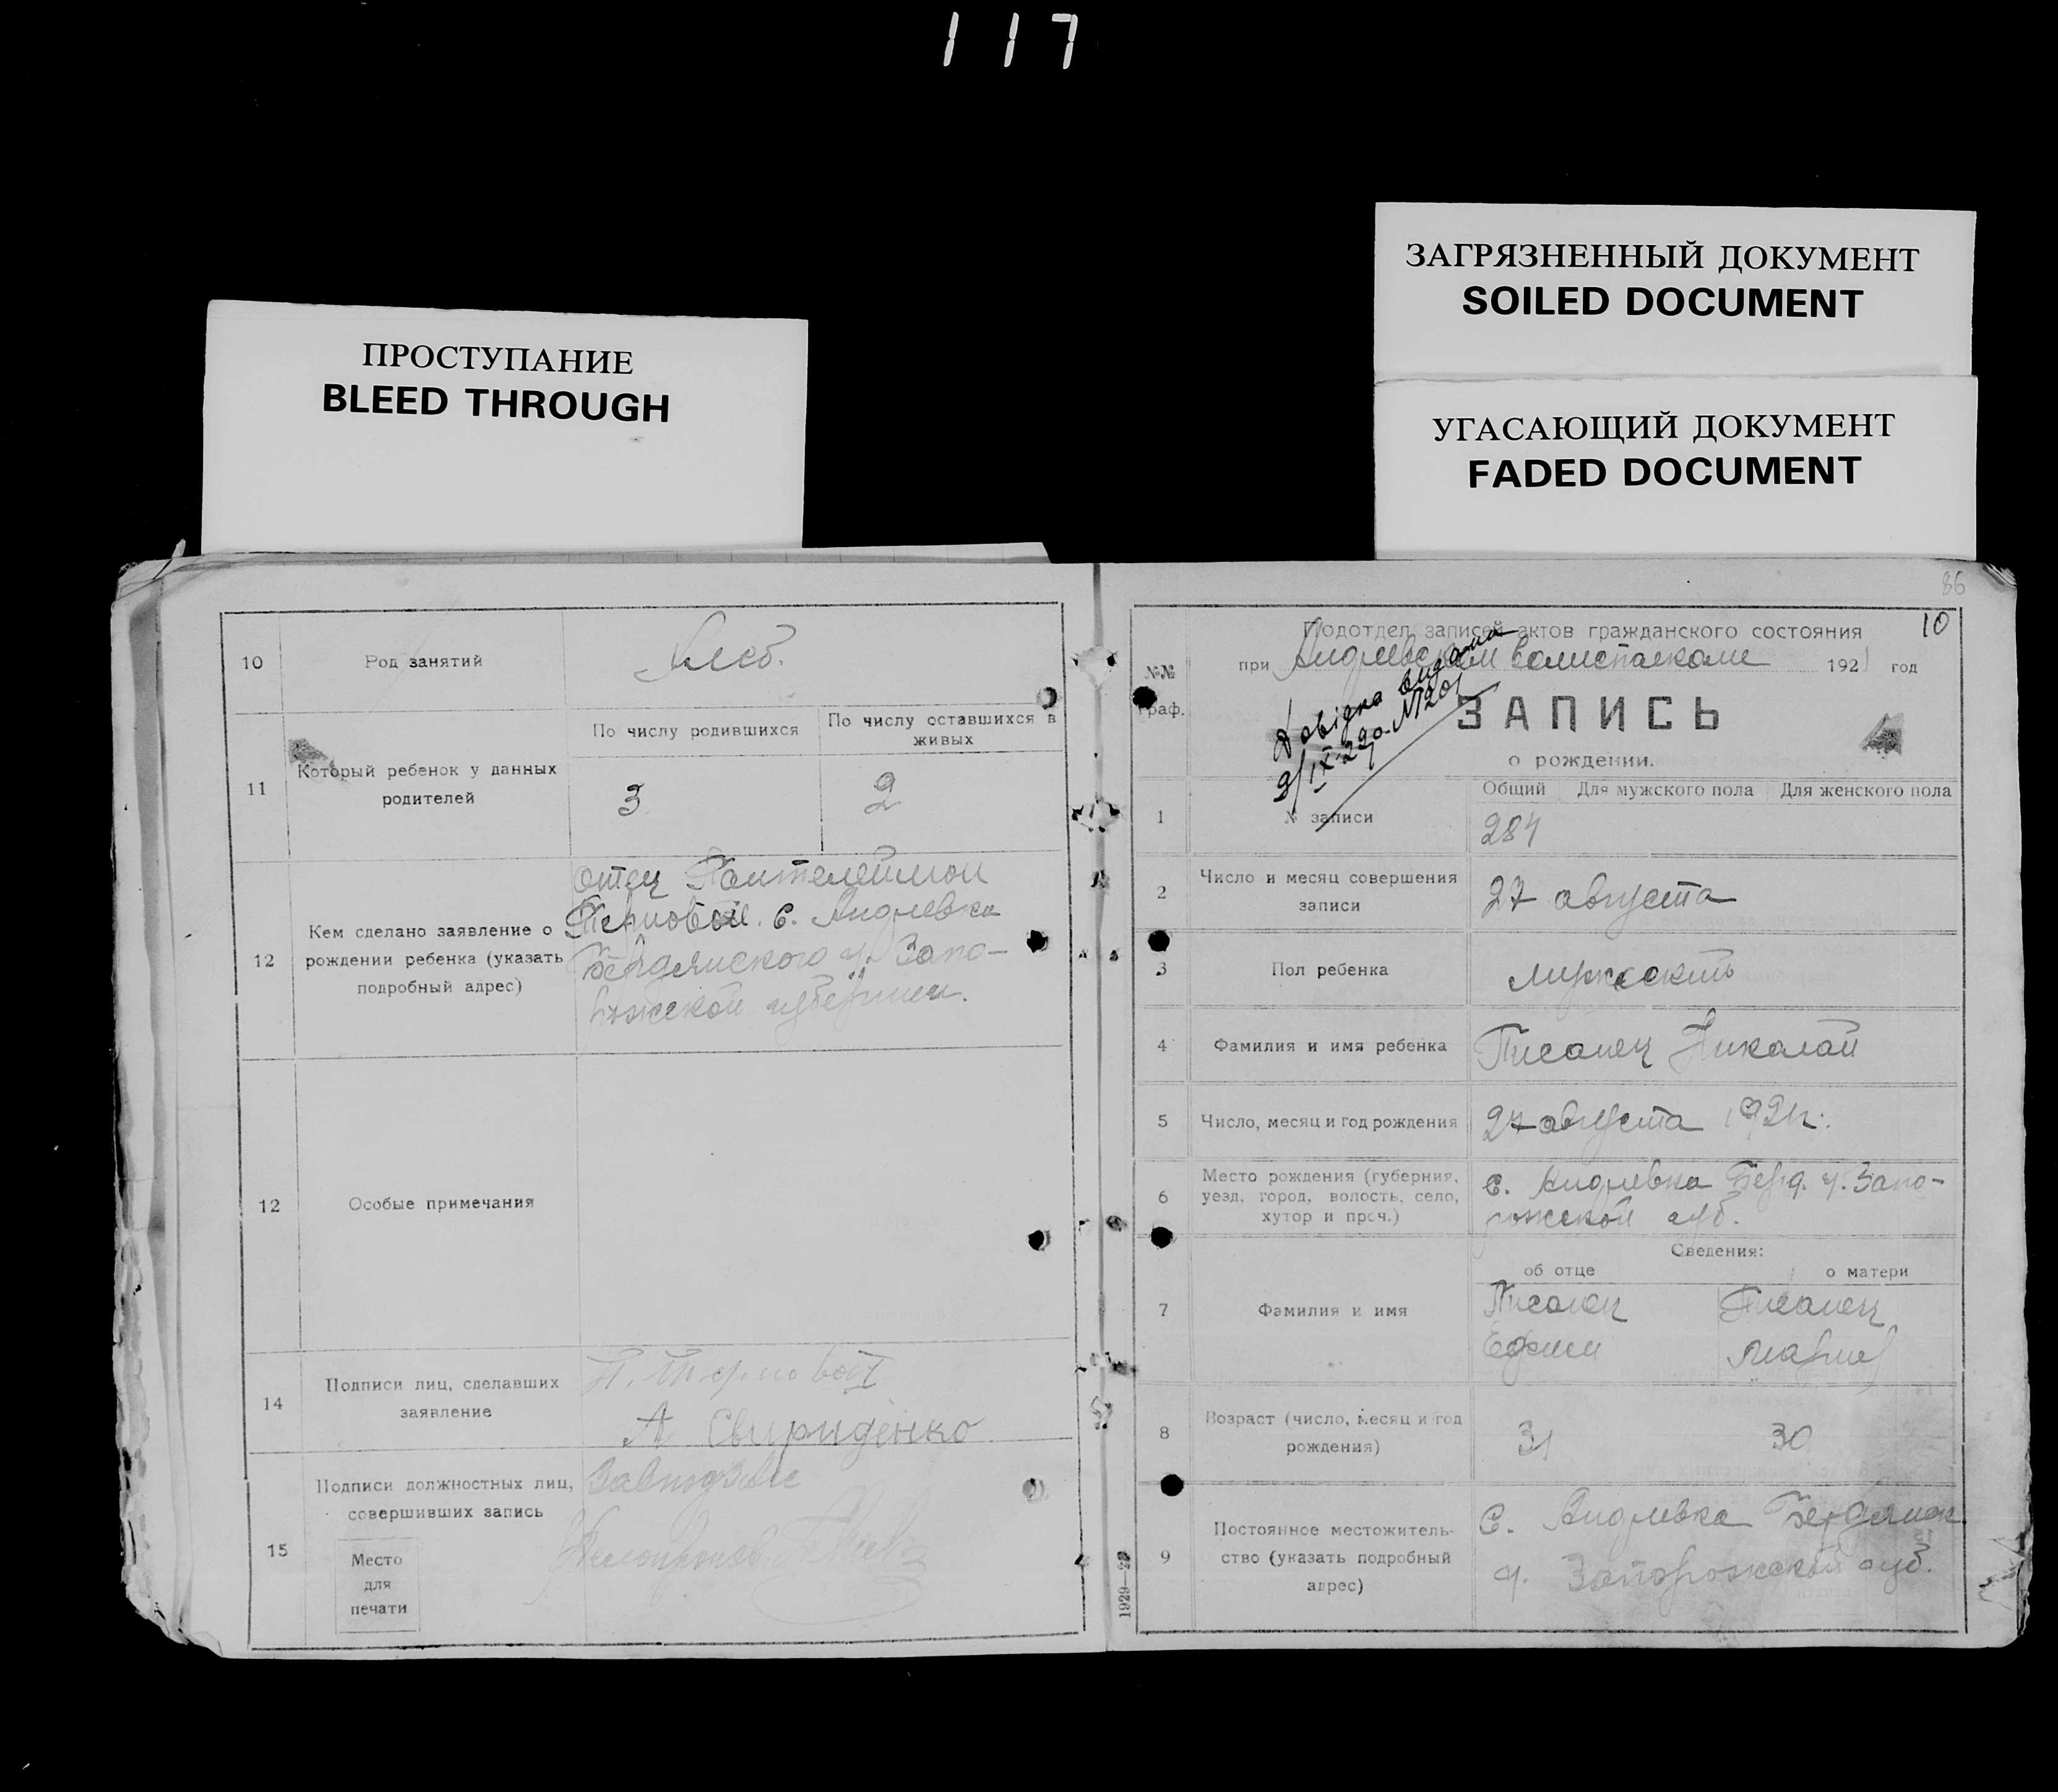 117
ПРОСТУПАНИЕ
BLEED THROUGH
ЗАГРЯЗНЕННЫЙ ДОКУМЕНТ
SOILED DOCUMENT
УГАСАЮЩИЙ ДОКУМЕНТ
FADED DOCUMENT
10
Род занятий
Хлеб.
11
Который ребенок у данных
родителей
По числу родившихся
3
По числу оставшихся в
живых
2
12
Кем сделано заявление о
рождении ребенка (указать
подробный адрес)
отец Пантелеймон
Терновой. с. Андреевка
Бердянского у. Запо-
рожской губернии.
12
Особые примечания
14
Подписи лиц, сделавших
заявление
П. Терновой
А Свириденко
15
Подписи должностных лиц,
совершивших запись
Место
для
печати
86
10
Подотдел записей актов гражданского состояния
при Андреевском волисполкоме 1921 год
№№
граф.
Довідка видана
9/IX-29р. №1201
ЗАПИСЬ
о рождении.
Общий Для мужского пола Для женского пола
1
№ записи
284
2
Число и месяц совершения
записи
27 августа
3
Пол ребенка
мужской
4
Фамилия и имя ребенка
Писанец Николай
5
Число, месяц и год рождения
27 августа 1921г.
6
Место рождения (губерния,
уезд, город, волость, село,
хутор и проч.)
с. Андреевка Берд. у. Запо-
рожской губ.
Сведения:
об отце
о матери
7
Фамилия и имя
Писанец
Ефим
Писанец
Мария
8
Возраст (число, месяц и год
рождения)
31
30
9
Постоянное местожитель-
ство (указать подробный
адрес)
с. Андреевка Бердянск
у. Запорожской губ.